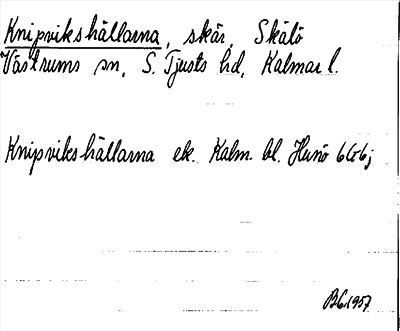 Knipvikshällarna, skär, Skälö
Västrums sn, S. Tjusts hd, Kalmar l.
Knipvikshällarna ek. Kalm. bl. Hunö 6G6j
1957